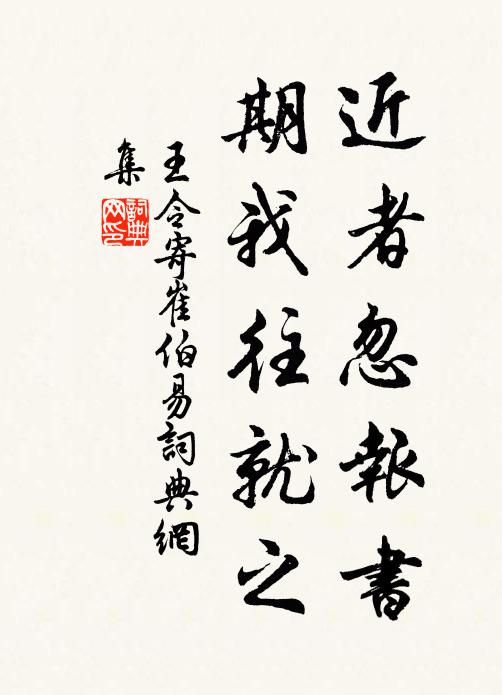 近者忽報書
期我往就之
王令寄崔伯易詞典網
集
詞典網印